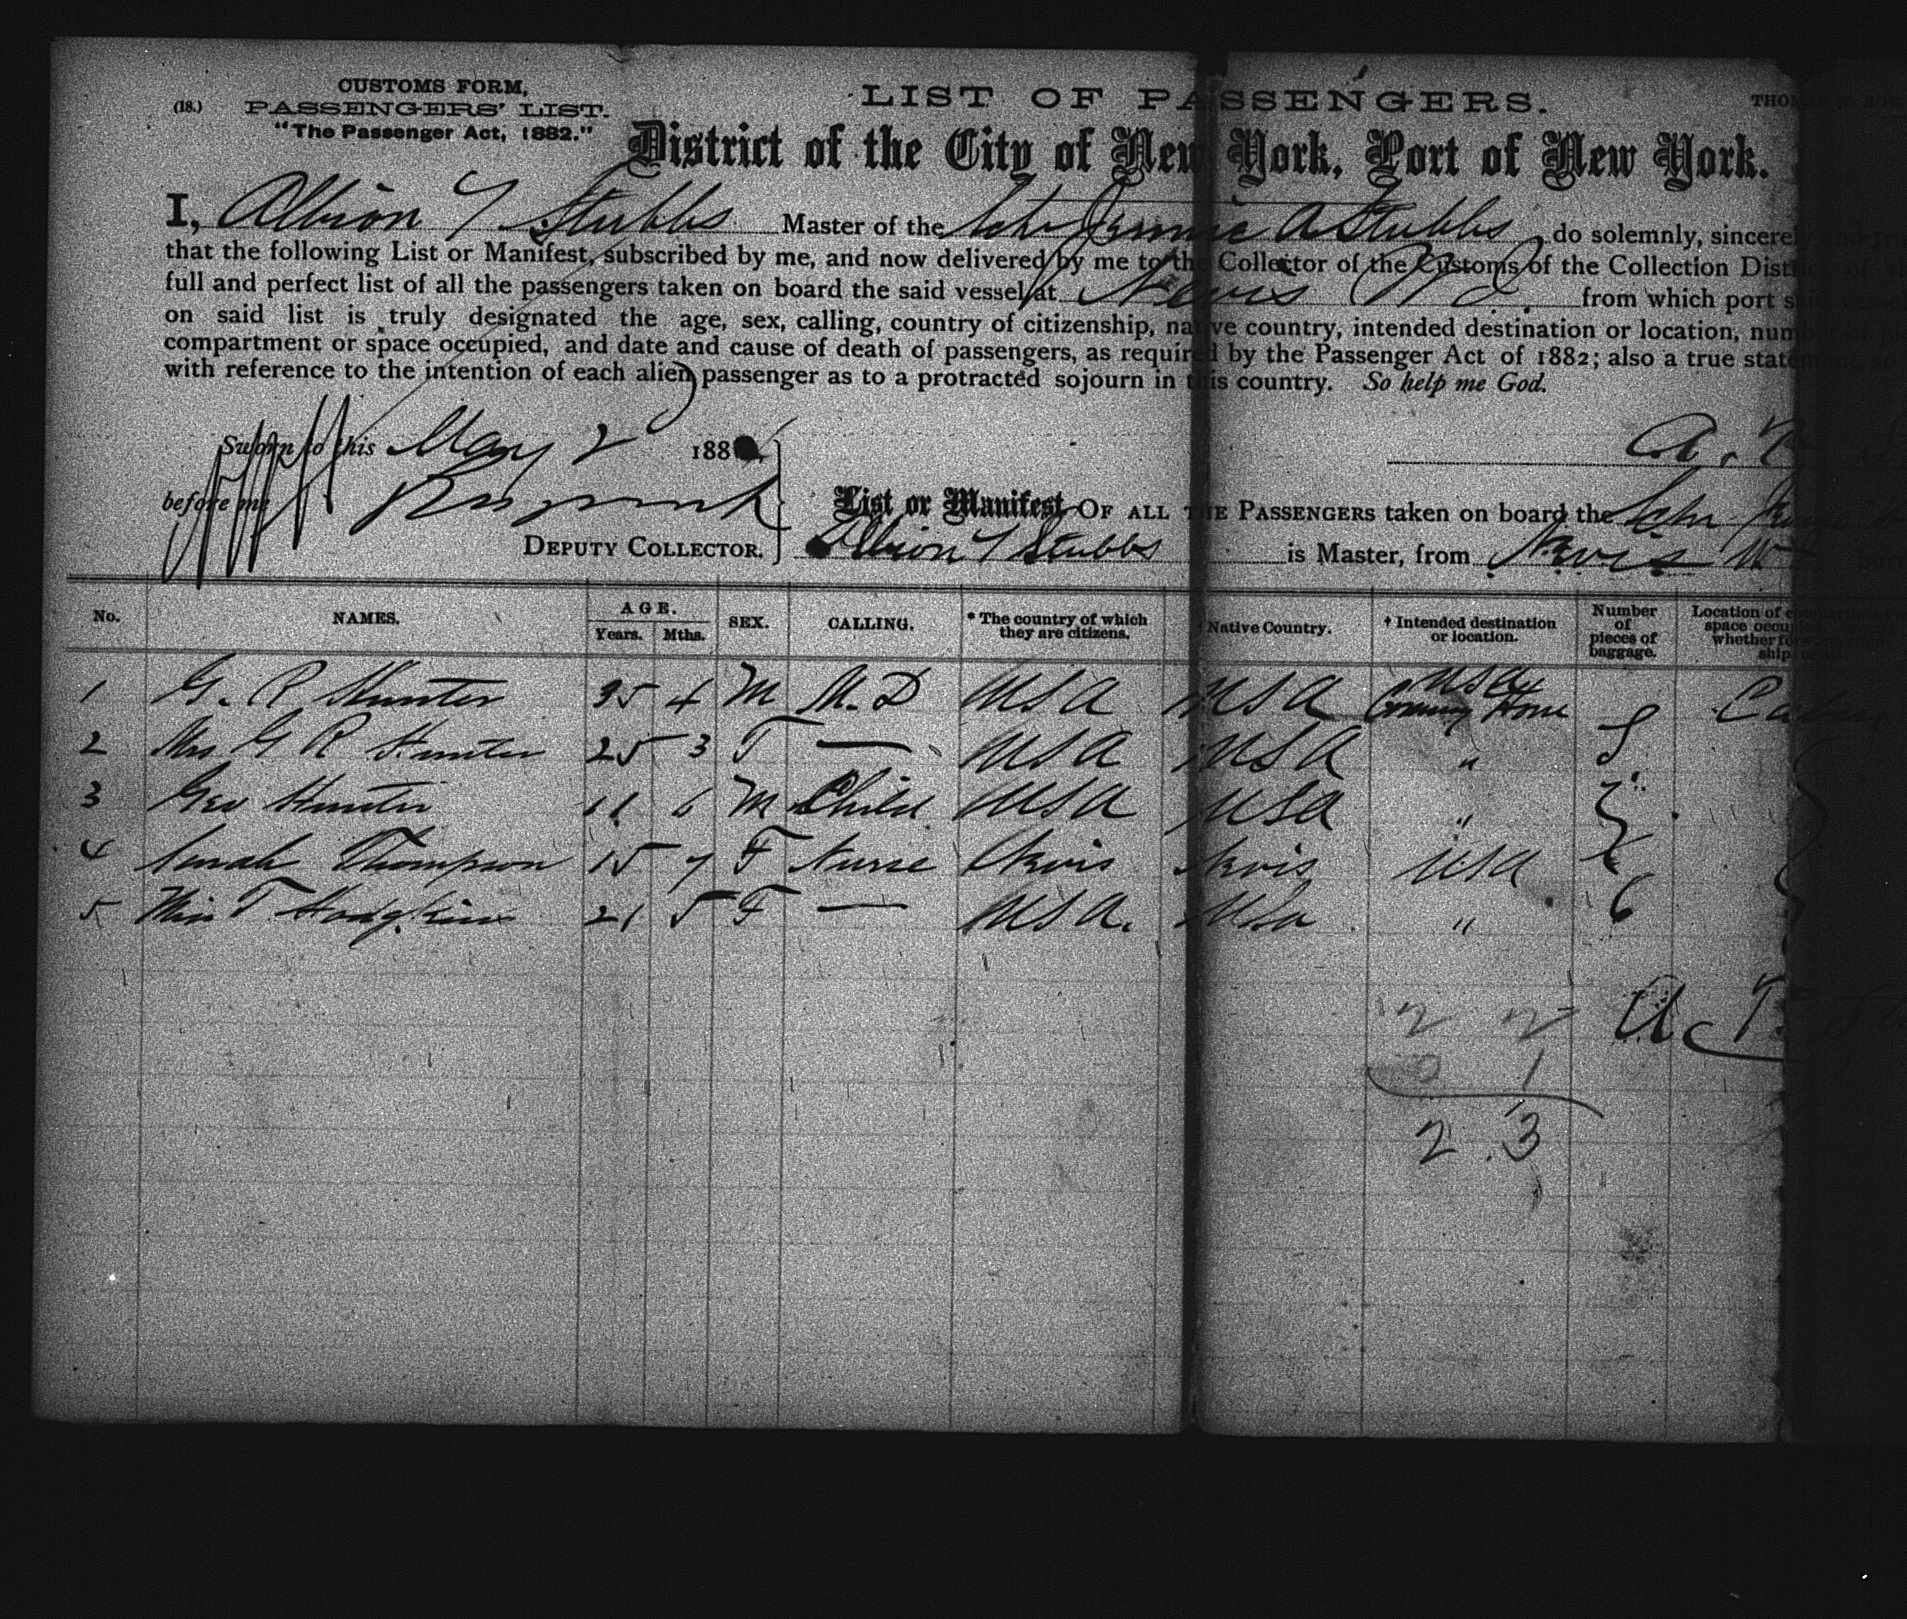 CUSTOMS FORM,
(18.) PASSENGERS' LIST.
"The Passenger Act, 1882."
LIST OF PASSENGERS.
District of the City of New York, Port of New York.
I, Albion T Stubbs Master of the Schr Jennie A Stubbs do solemnly, sincerely
that the following List or Manifest, subscribed by me, and now delivered by me to the Collector of the Customs of the Collection District
full and perfect list of all the passengers taken on board the said vessel at Nevis W I from which port said vessel
on said list is truly designated the age, sex, calling, country of citizenship, native country, intended destination or location, number of
compartment or space occupied, and date and cause of death of passengers, as required by the Passenger Act of 1882; also a true statement, so
with reference to the intention of each alien passenger as to a protracted sojourn in this country. So help me God.
Sworn to this May 2 188
before me
DEPUTY COLLECTOR.
A. T
List or Manifest OF ALL THE PASSENGERS taken on board the Schr
Albion T Stubbs is Master, from Nevis W
No. NAMES. AGE. Years. Mths. SEX. CALLING. * The country of which they are citizens. Native Country. † Intended destination or location. Number of pieces of baggage. Location of
1 G. R Hunter 35 4 M M.D USA USA USA Coming Home
2 Mrs G R Hunter 25 3 F — USA USA "
3 Geo Hunter 11 6 M Child USA USA "
4 Sarah Thompson 15 7 F Nurse Nevis Nevis USA
5 Miss T Hodgkins 21 5 F — USA. USA " 6
2 2
0 1
2 3